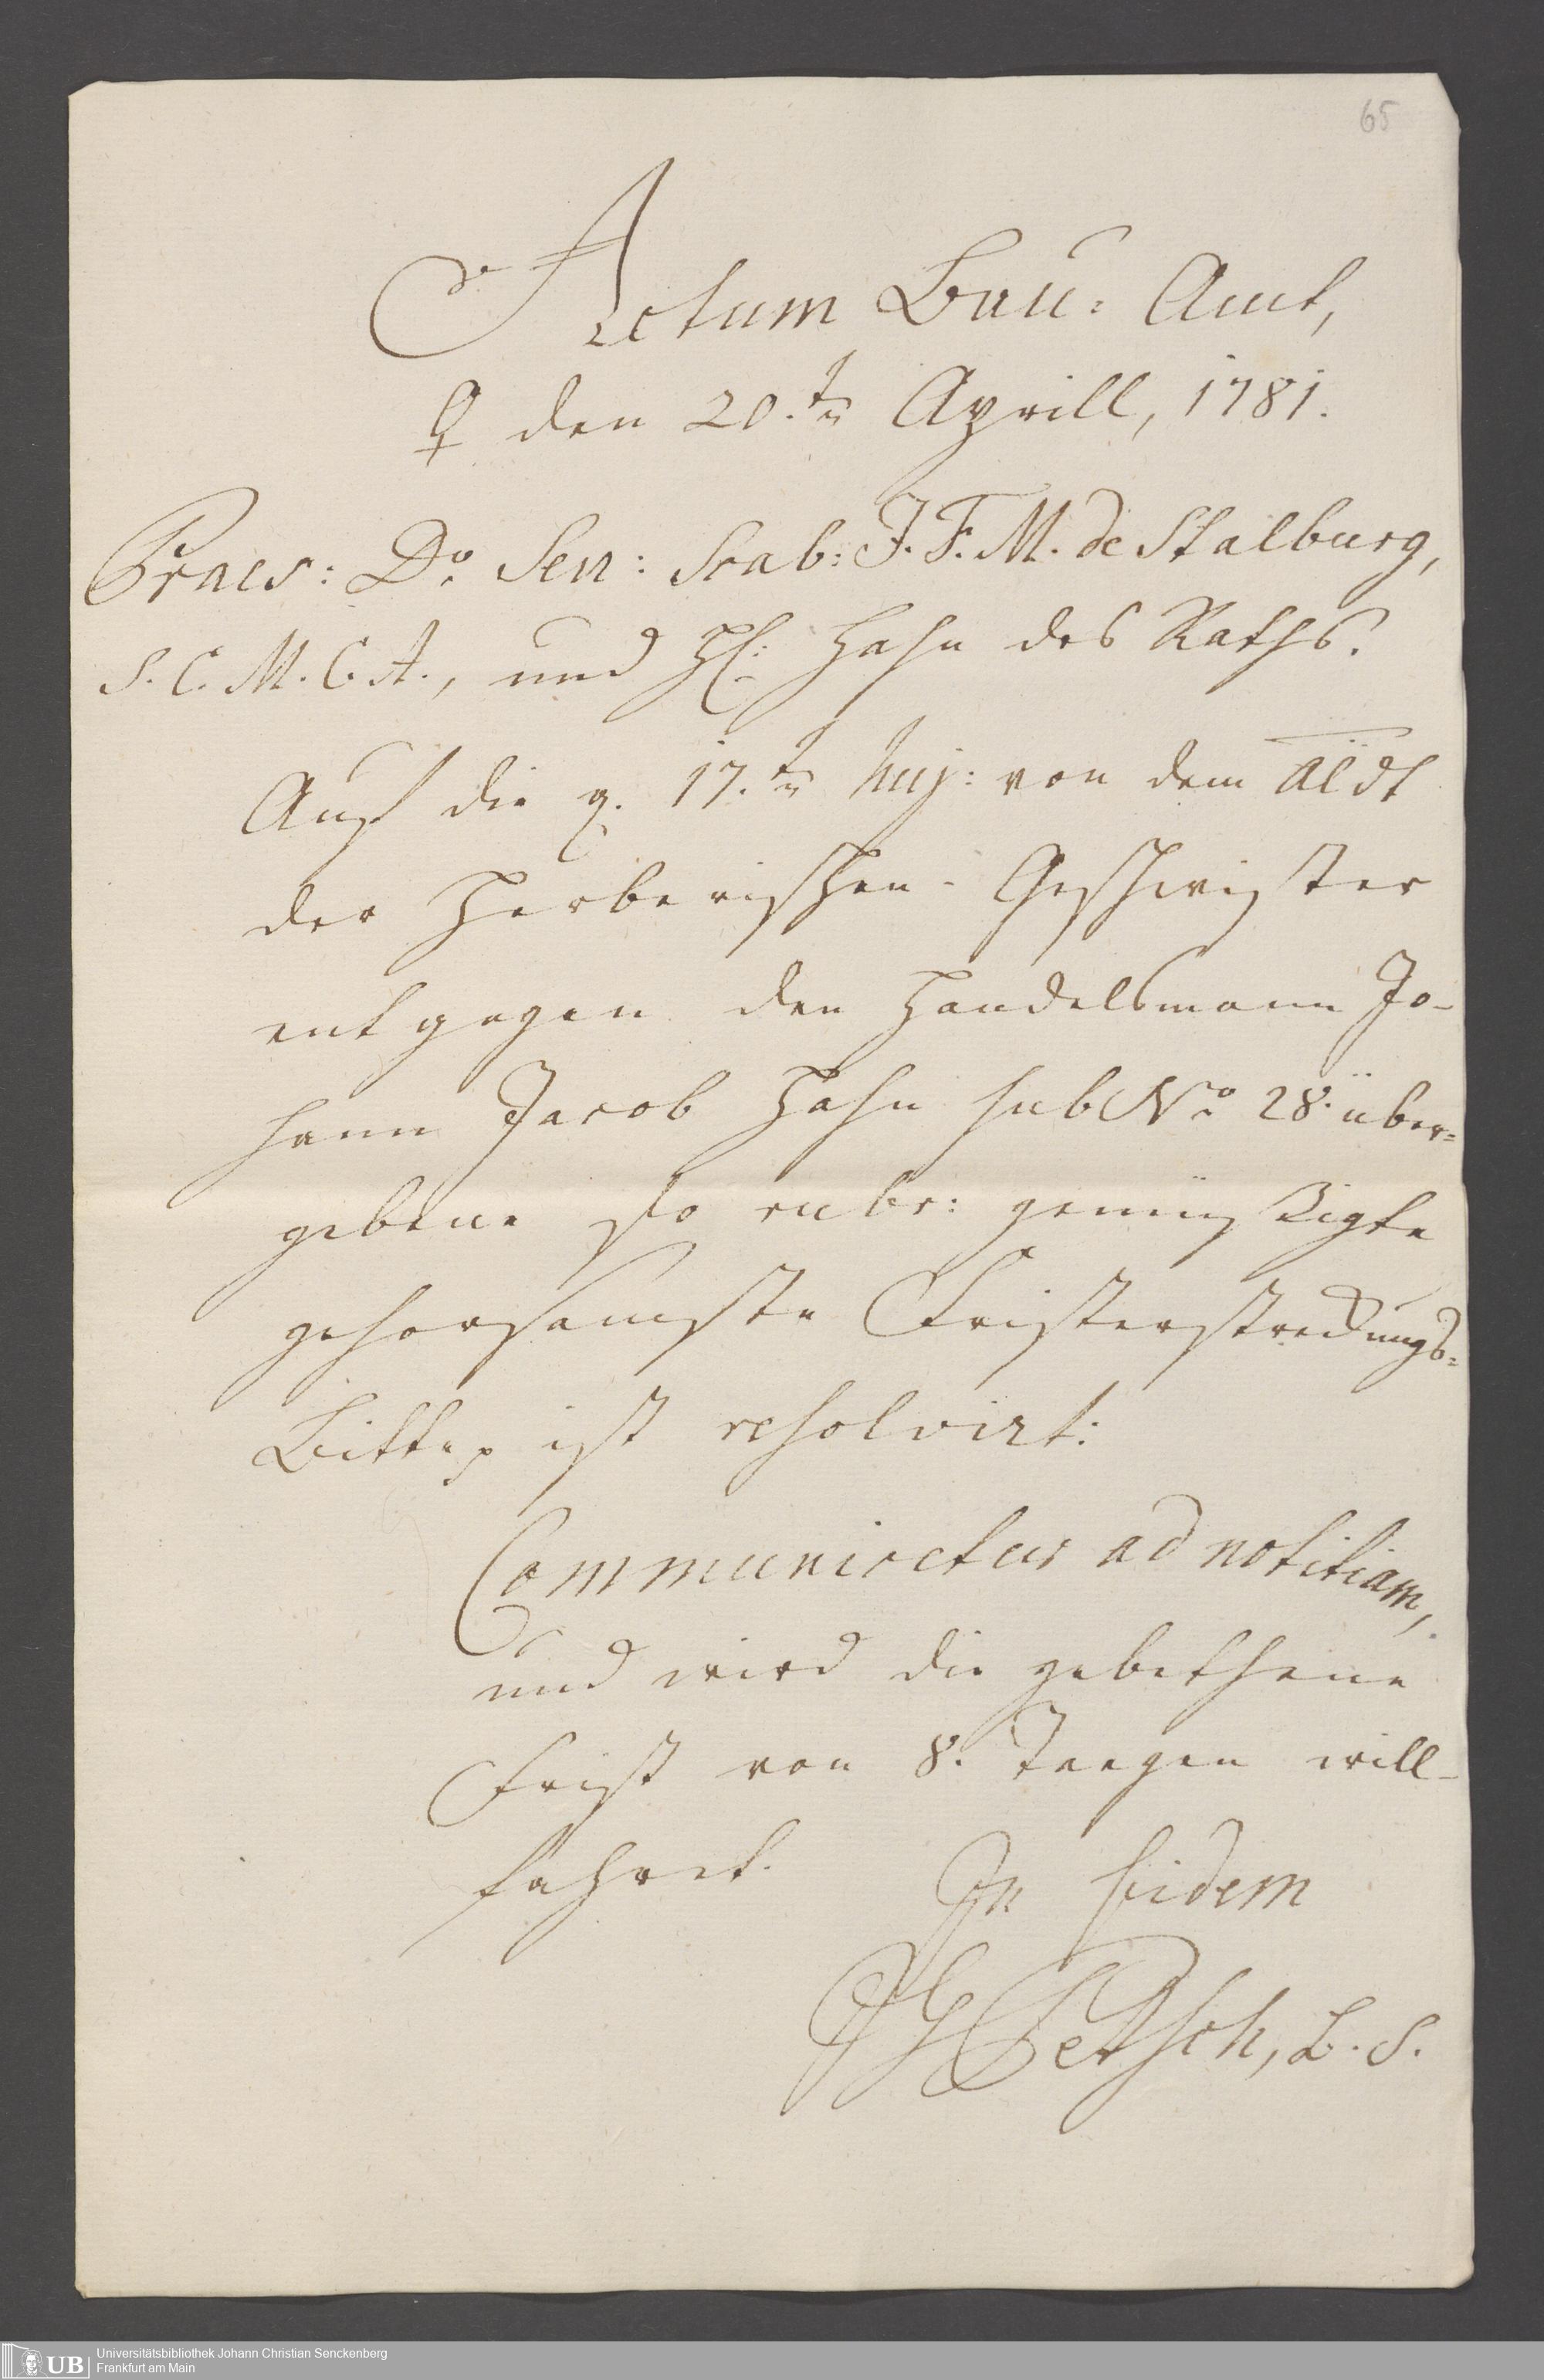 65
Actum Bau: Amt,
♀ den 20.tn Aprill, 1781.
Praes: Do. Sen: Scab: J. F. M. de Stalburg,
S. C. M. C. A., und H: Hahn des Raths.
Auf die d. 17.tn huj: von dem
der Herberischen-Geschwister
entgegen den Handelsmann Jo-
hann Jacob Hahn sub No. 28. über=
gebene so rubr: gemüßigte
gehorsamste Fristerstreckungs=
Bitte, ist resolvirt:
Communicetur ad notitiam,
und wird die gebethene
Frist von 8. Taegen will-
fahret.
In fidem
Petsch, L. S.
UB
Universitätsbibliothek Johann Christian Senckenberg
Frankfurt am Main